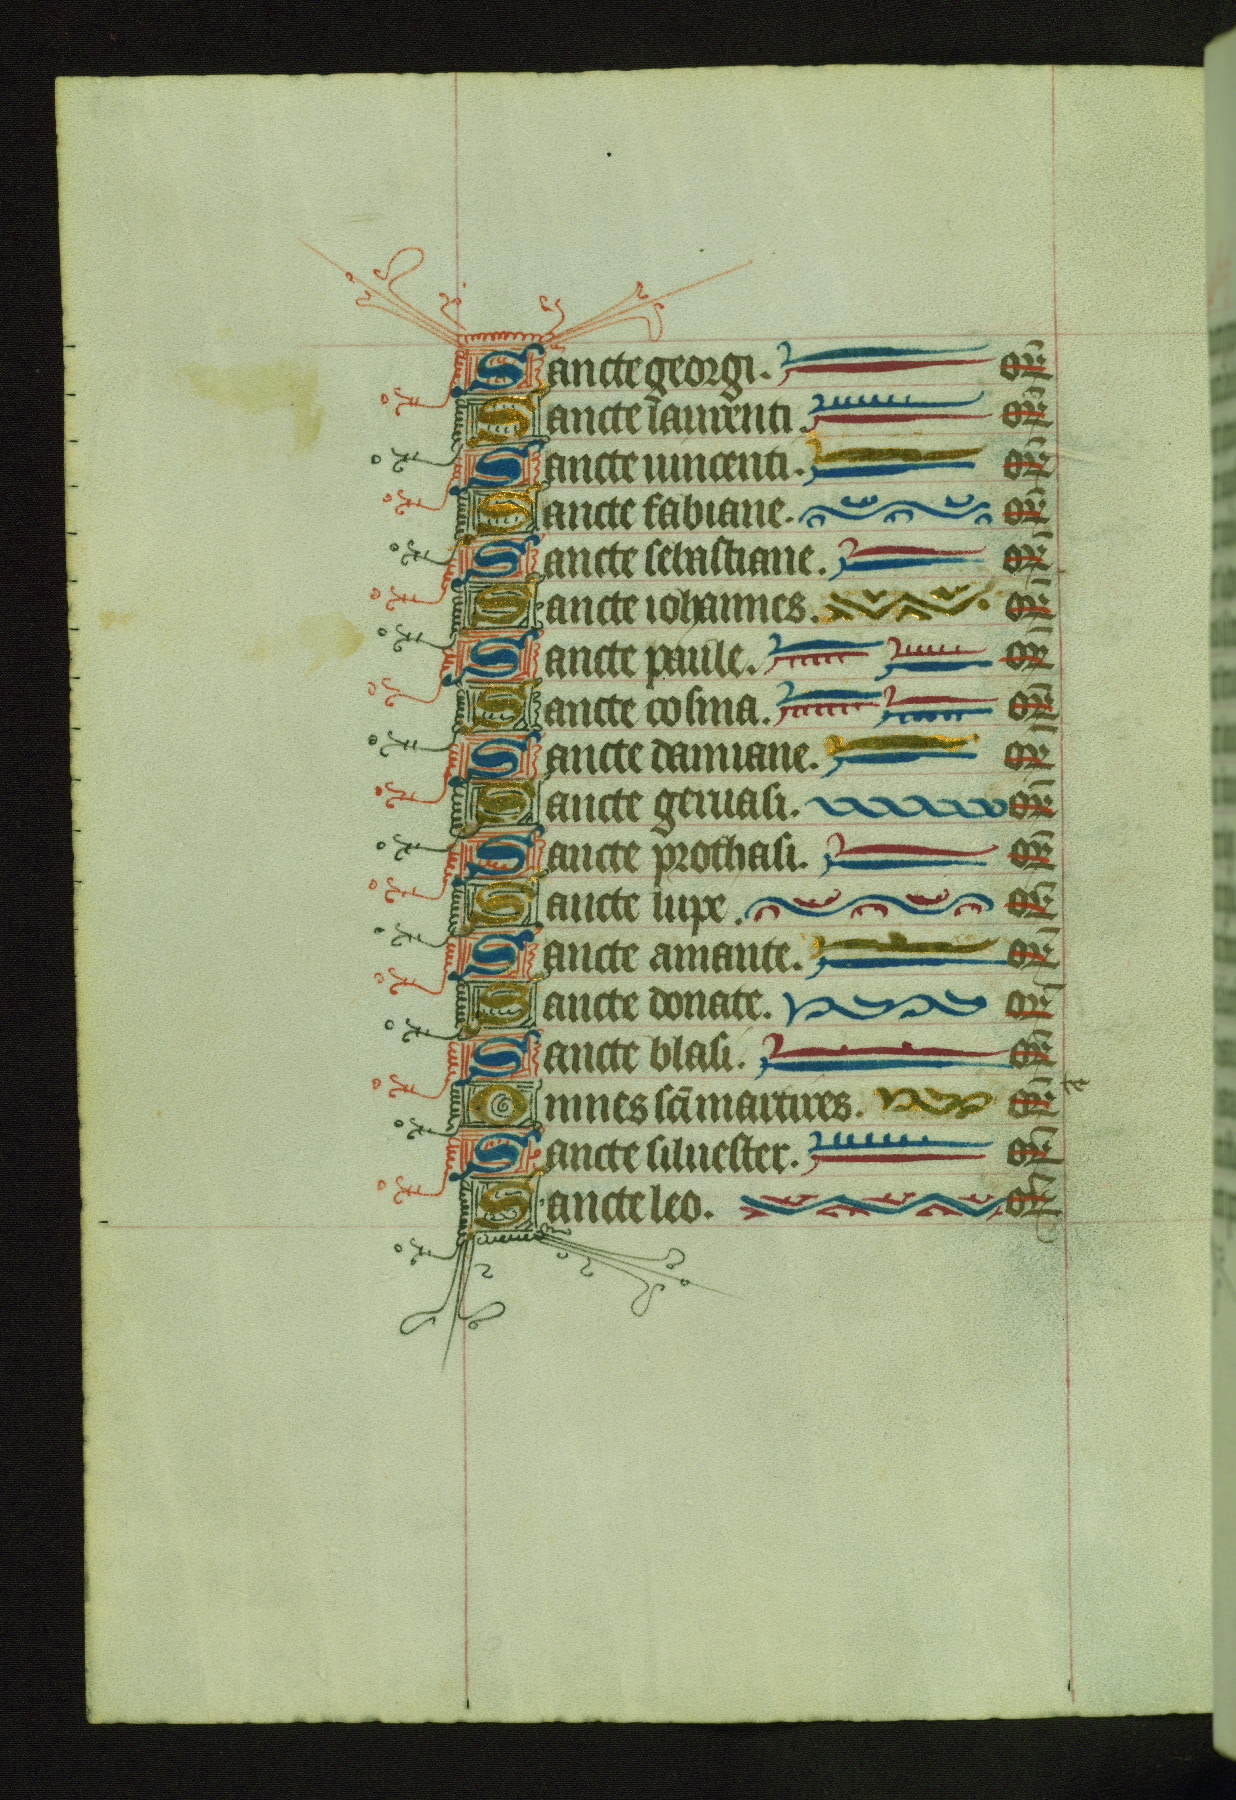 Sancte georgi. or̄
Sancte laurenti. or̄
Sancte uincenti. or̄
Sancte fabiane. or̄
Sancte sebastiane. or̄
Sancte iohannes. or̄
Sancte paule. or̄
Sancte cosma. or̄
Sancte damiane. or̄
Sancte geruasi. or̄
Sancte prothasi. or̄
Sancte lupe. or̄
Sancte amante. or̄
Sancte donate. or̄
Sancte blasi. or̄
Omnes sc̄i martires. or̄
Sancte siluester. or̄
Sancte leo. or̄